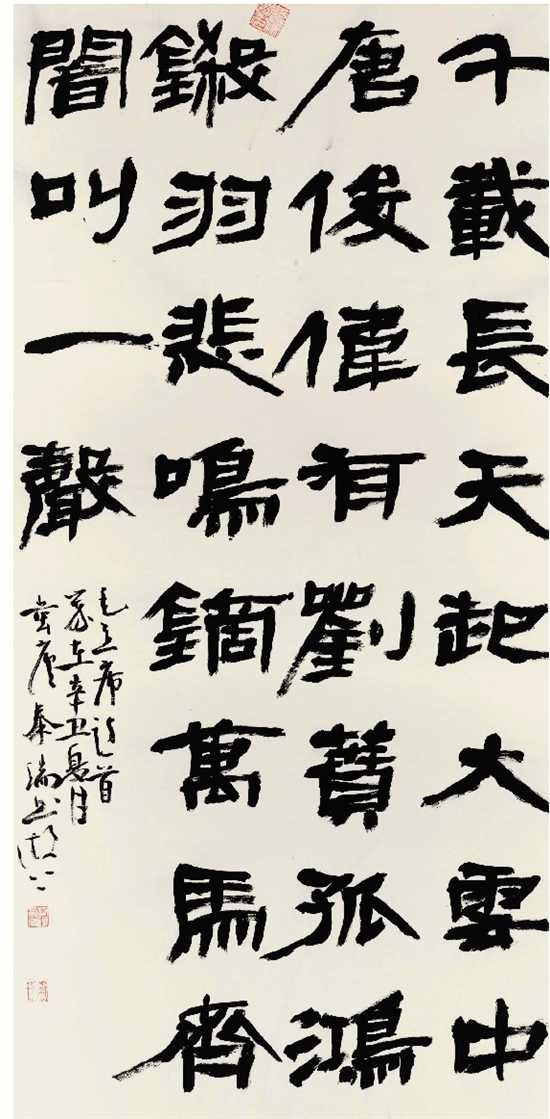 千載長天起大雲中
唐俊偉有劉蕡孤鴻
鎩羽悲鳴鏑萬馬齊
闇叫一聲
毛主席詩首
歲在辛丑夏月
秦瑞